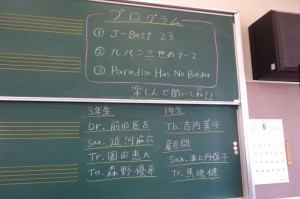 プログラム
① J-Best 23
② ルパン三世のテーマ
③ Paradise Has No Border
楽しんで聞いてね!!
3年生
Dr. 前田
Sax.
Tr. 園田恵大
Tu. 森野優希
1年生
Tb.
顧問
Sax. 井上
Tr. 馬場健
6